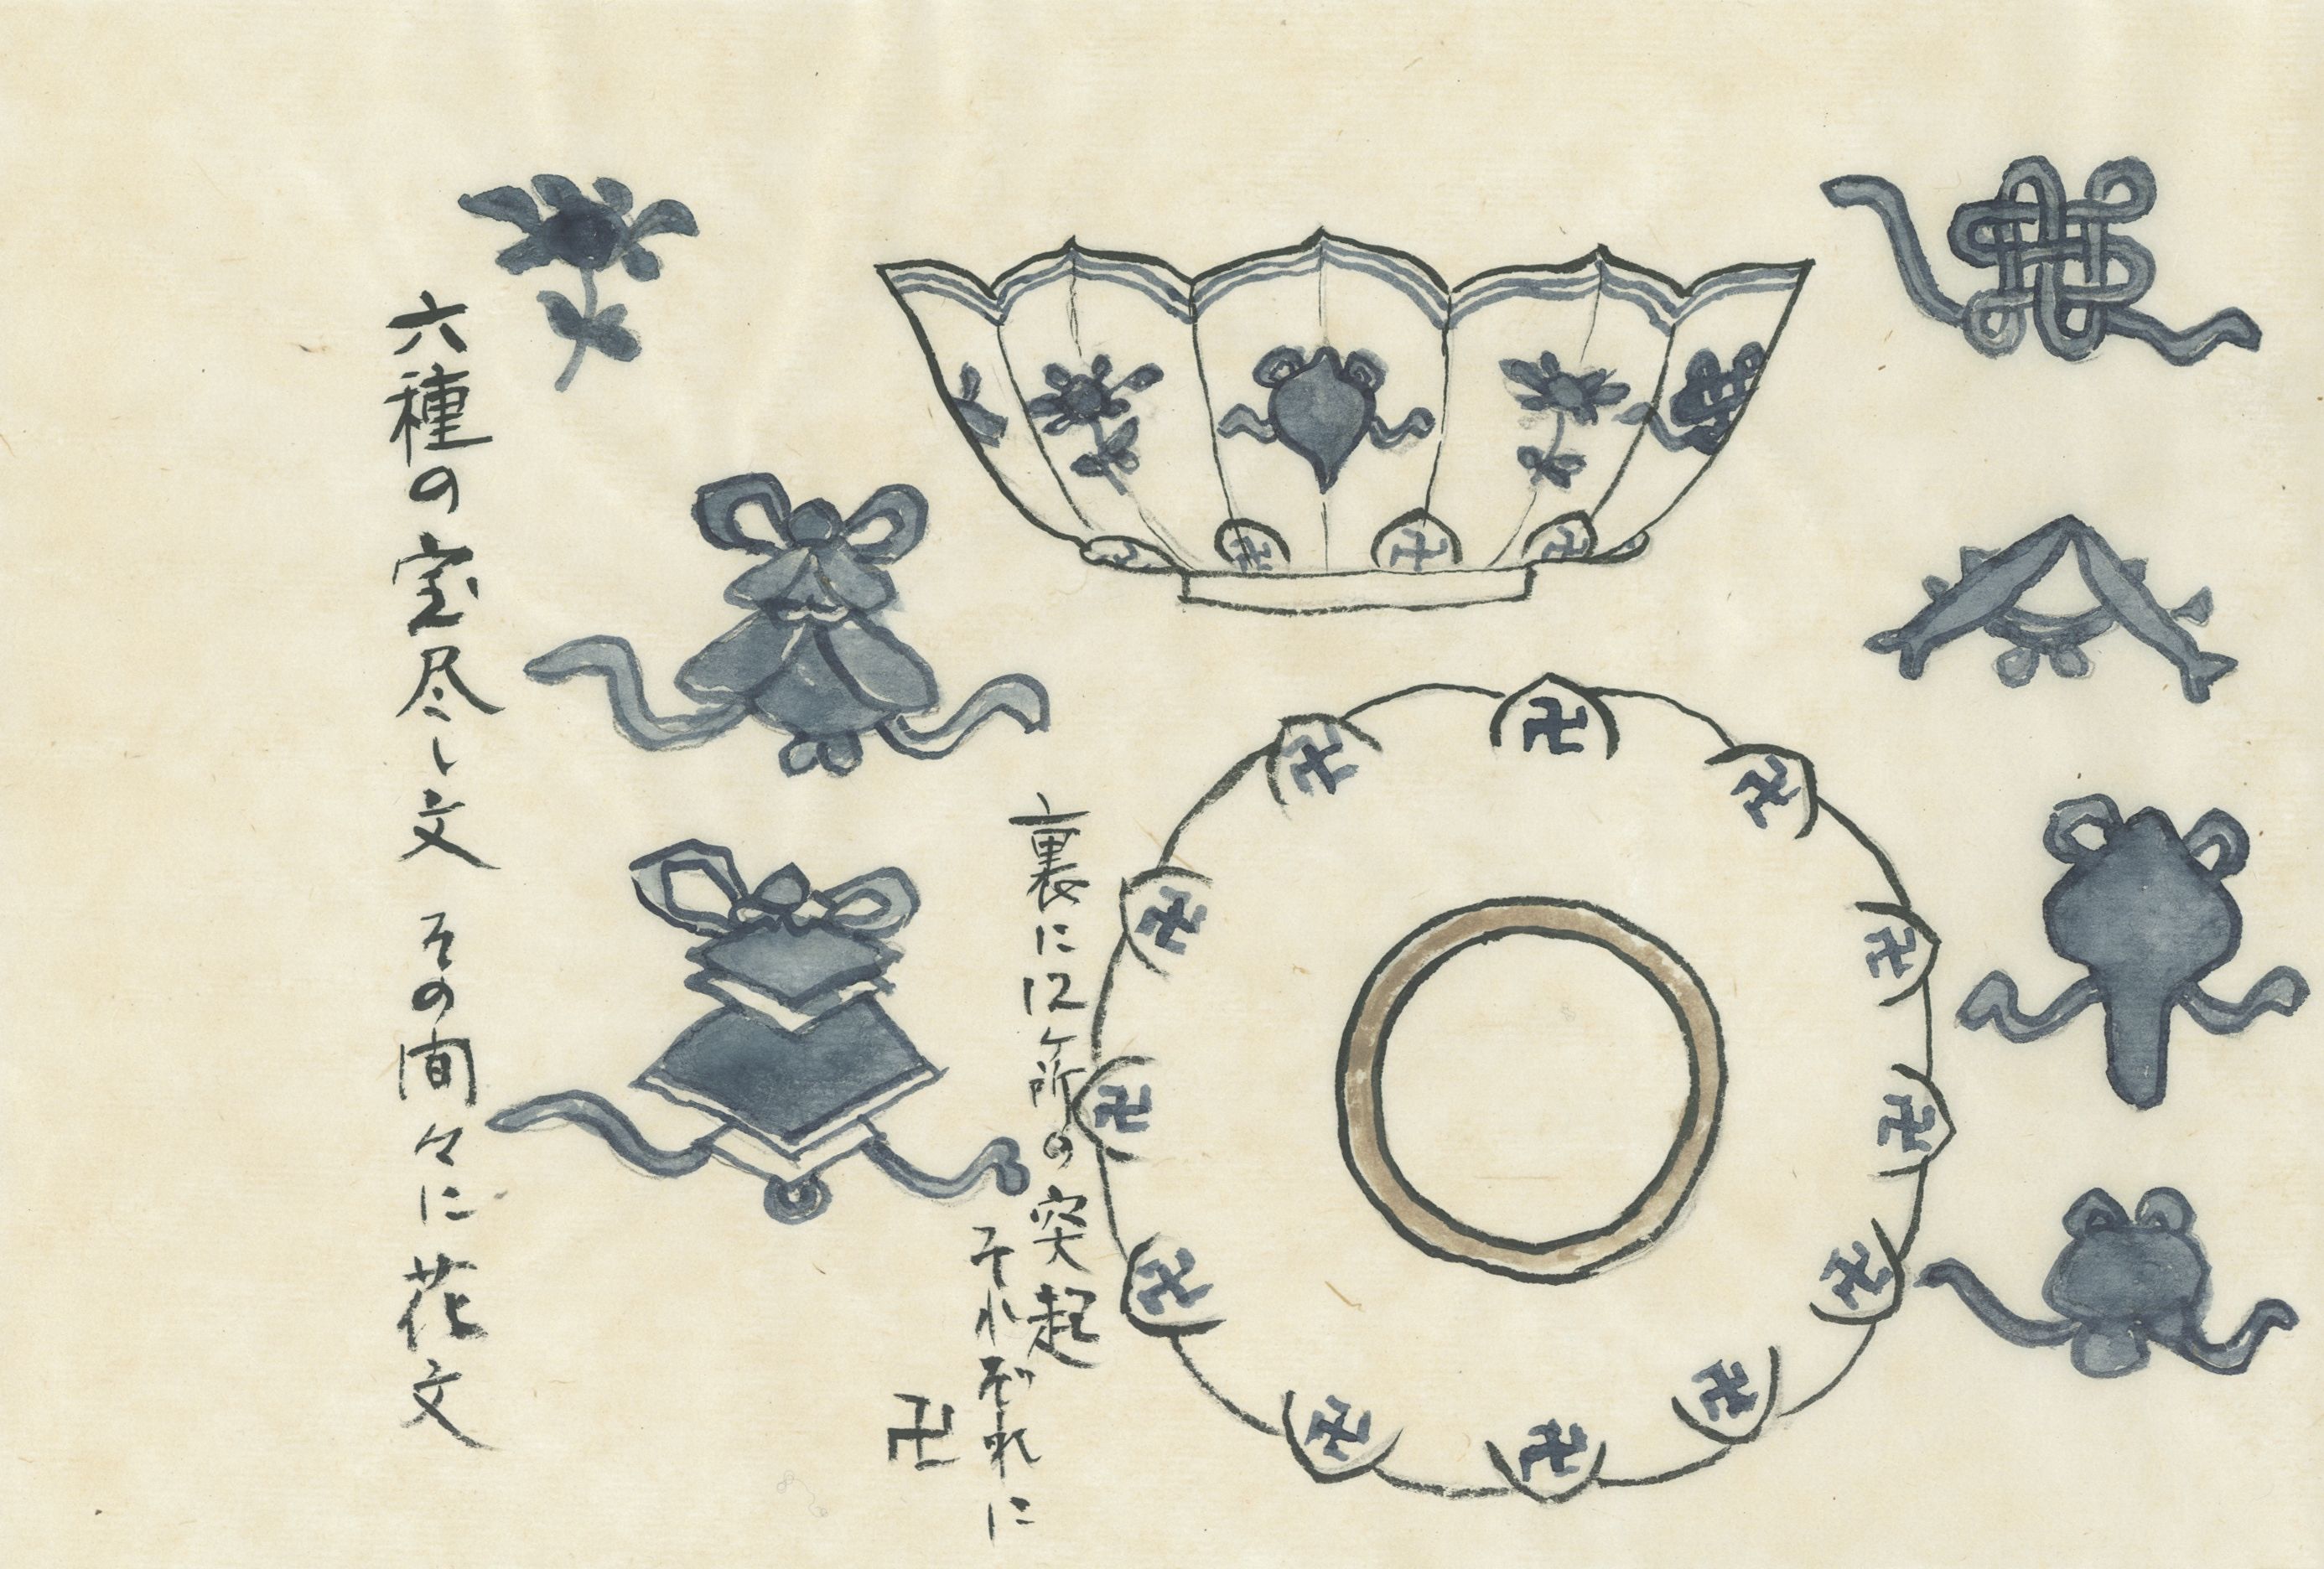 裏に12ヶ所の突起
それぞれに
卍
六種の宝尽し文 その間々に花文